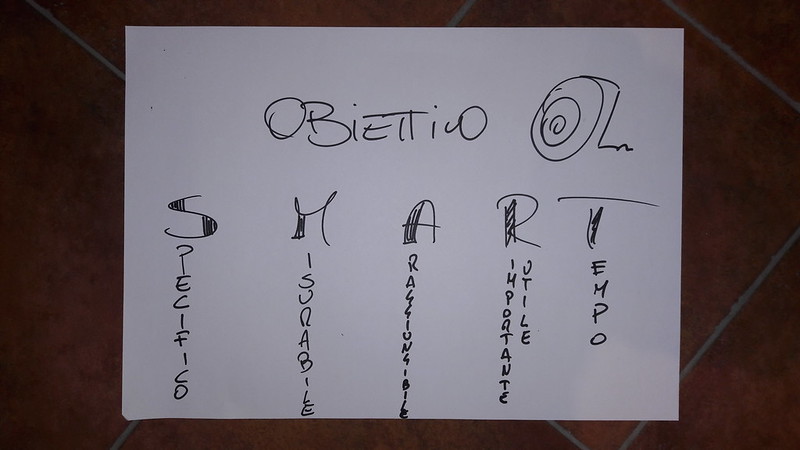 OBIETTIVO
S M A R T
PECIFICO
ISURABILE
RAGGIUNGIBILE
IMPORTANTE
UTILE
EMPO